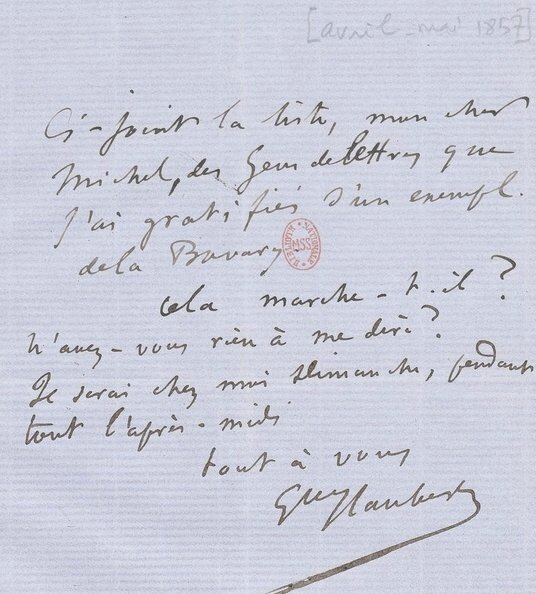 [avril-mai 1857]
Ci-joint la liste, mon cher
Michel, des Gens de lettres que
j'ai gratifiés d'un exempl.
de la Bovary
BIBLIOTH. NATIONALE MSS
cela marche-t-il?
N'avez-vous rien à me dire?
Je serai chez moi dimanche, pendant
tout l'après-midi
tout à vous
Gve Flaubert